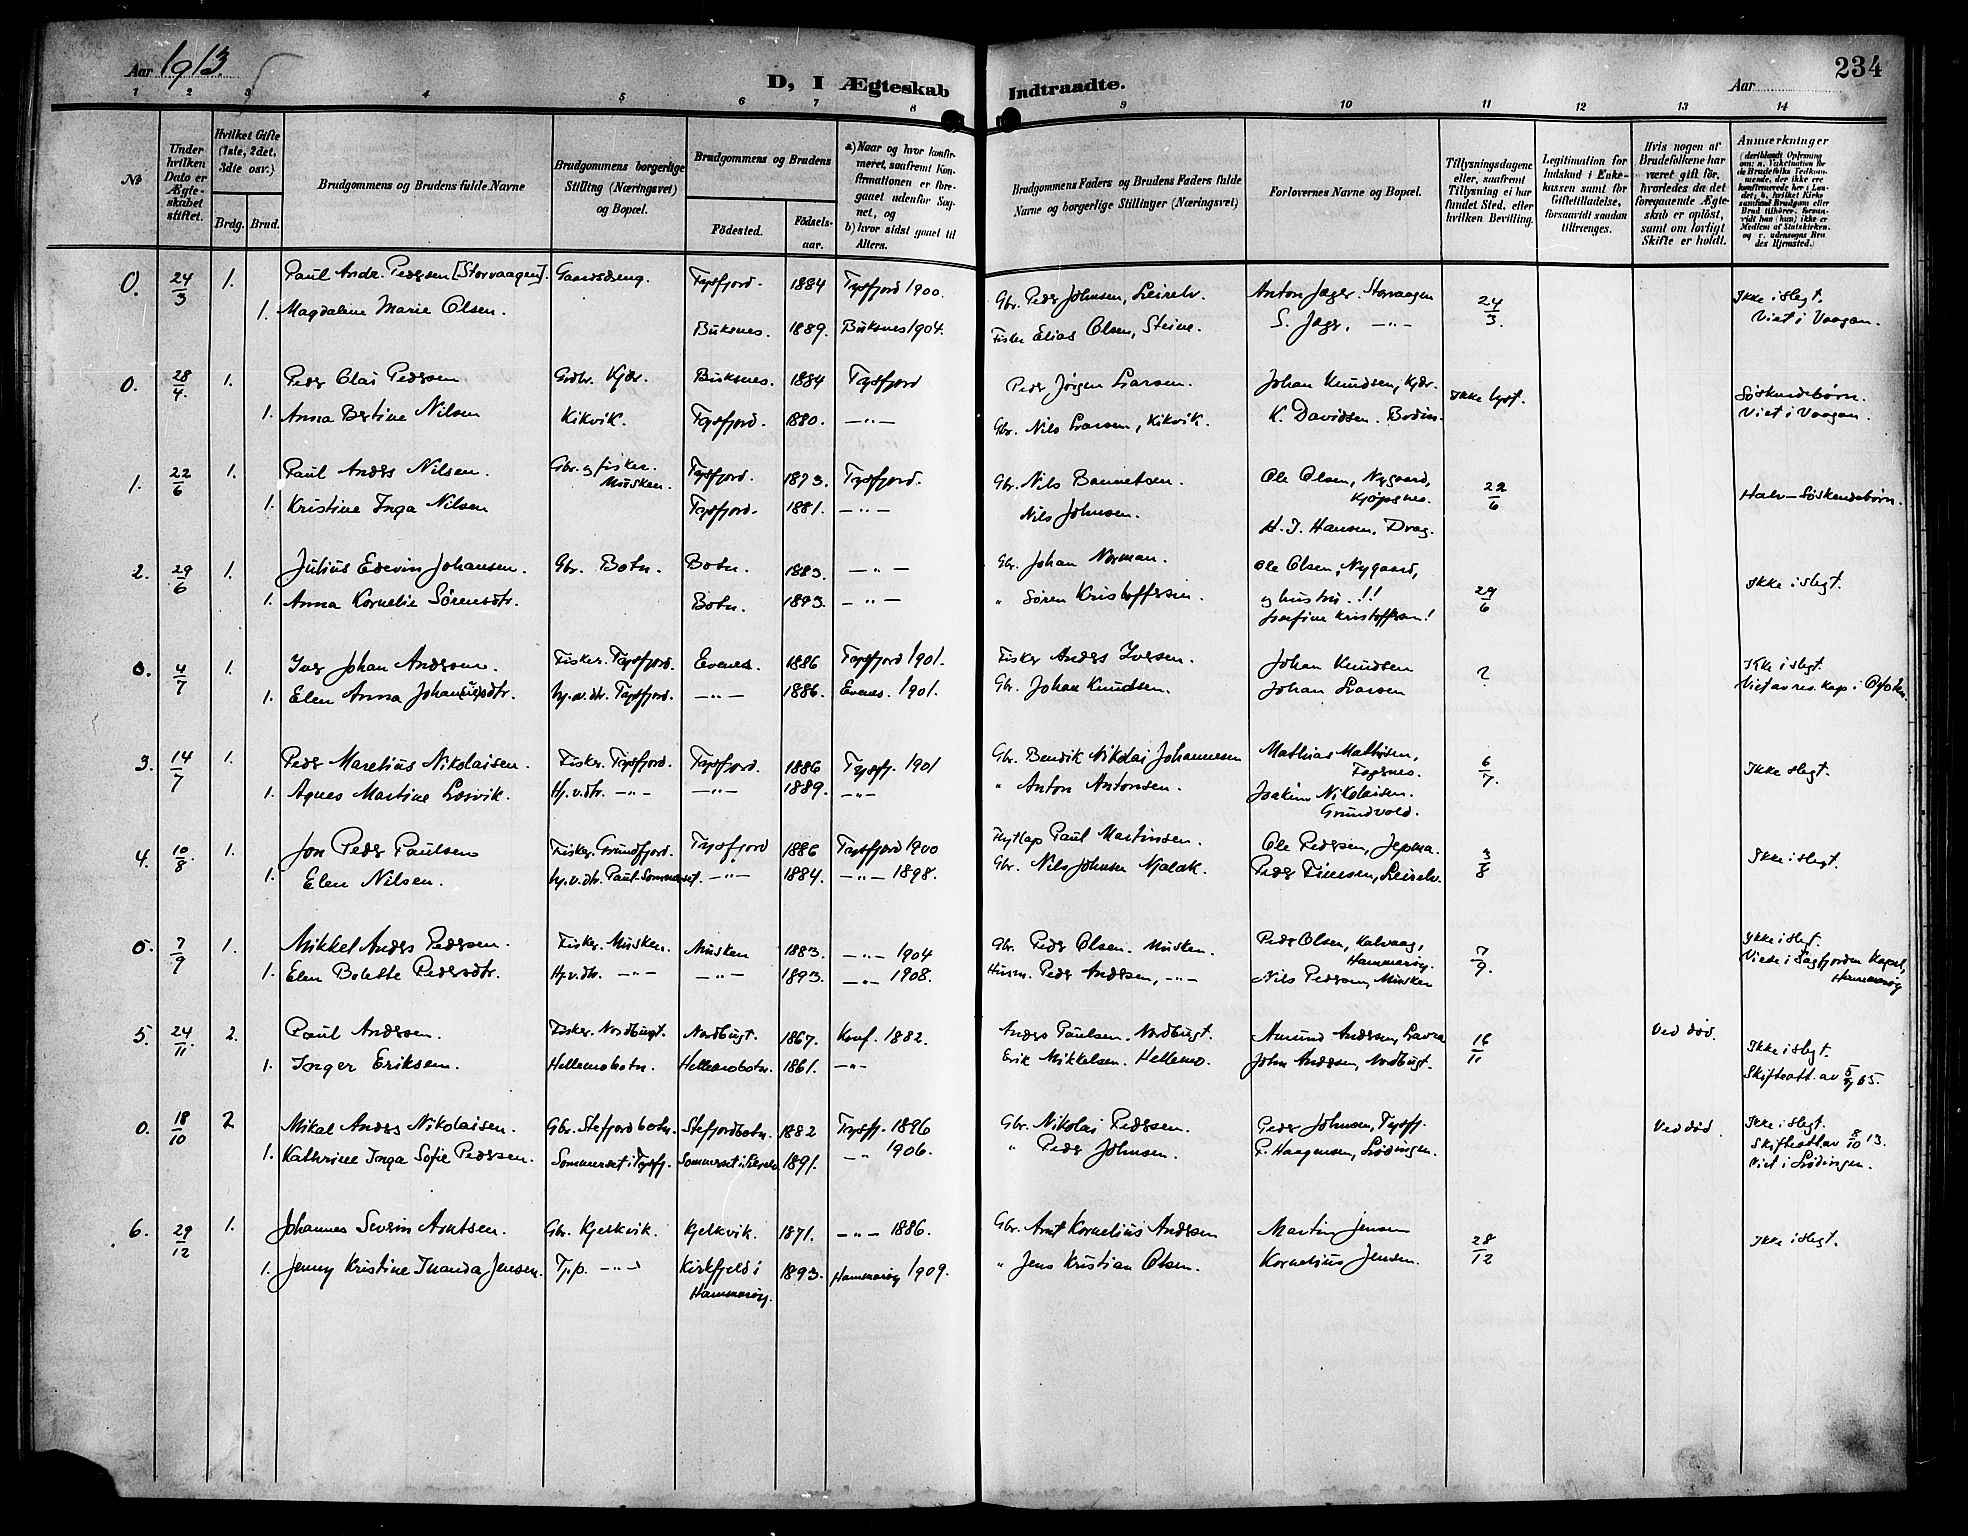 Aar 1913.
D, I Ægteskab Indtraadte.
Aar
234
1 2 3 4 5 6 7 8 9 10 11 12 13 14
No
Under hvilken Dato er Ægteskabet stiftet.
Hvilket Gifte (1ste, 2det, 3die osv.)
Brdg. Brud.
Brudgommens og Brudens fulde Navne
Brudgommens borgerlige Stilling (Næringsvei) og Bopæl.
Brudgommens og Brudens
Fødested. Fødselsaar.
a) Naar og hvor konfirmeret, saafremt Konfirmationen er foregaaet udenfor Sognet, og
b) hvor sidst gaaet til Alters.
Brudgommens Faders og Brudens Faders fulde Navne og borgerlige Stillinger (Næringsvei)
Forlovernes Navne og Bopæl.
Tillysningsdagene eller, saafremt Tillysning ei har fundet Sted, efter hvilken Bevilling.
Legitimation for Indskud i Enkekassen samt for Giftetilladelse, forsaavidt saadan tiltrænges.
Hvis nogen af Brudefolkene har været gift før, hvorledes da det foregaaende Ægteskab er opløst, samt om lovligt Skifte er holdt.
Anmærkninger
0. 24/3 1. Paul Andr. Pedersen [Storvaagen]. Gaardsdreng. Tysfjord. 1884 Tysfjord 1900. Gbr. Peder Johnsen, Leirelv. Anton Jæger. Storvaagen 24/3 Ikke i slegt.
1. Magdaline Marie Olsen. Buksnes. 1889. Buksnes 1904. Fisker Elias Olsen, Steine. S. Jæger, —"— Viet i Vaagan.
0. 28/4. 1. Peder Olai Pedersen Grdbr. Kjær. Buksnes. 1884 Tysfjord Peder Jørgen Larsen. Johan Knudsen, Kjær. Ikke lyst. Søskendebørn.
1. Anna Bertine Nilsen Kikvik. Tysfjord. 1880. —"— Gbr. Nils Larsen, Kikvik. K. Davidsen. Bodin. Viet i Vaagan.
1. 22/6 1. Paul Anders Nilsen. Gbr. og fisker. Musken. Tysfjord. 1873. Tysfjord. Gbr. Nils Bannetsen. Ole Olsen, Nygaard, Kjøpsnes. 22/6 Halv-Søskendebørn.
1. Kristine Inga Nilsen Tysfjord. 1881. —"— Nils Johnsen. H. J. Hansen, Drag.
2. 29/6 1. Julius Edevin Johansen. Gbr. Botn. Botn. 1883. —"— Gbr. Johan Norman. Ole Olsen, Nygaard, 29/6 Ikke i slegt.
1. Anna Kornelie Sørensdtr. Botn. 1893. —"— " Søren Kristoffersen. og hustru.!!
Josefine Kristoffersen!
0. 4/7 1. Iver Johan Andersen. Fisker. Tysfjord. Evenes. 1886 Tysfjord 1901. Fisker Anders Iversen. Johan Knudsen ? Ikke i slegt.
1. Elen Anna Johannesdtr. hj.v.dtr. Tysfjord. —"— 1886. Evenes. 1901. Gbr. Johan Knudsen. Johan Larsen Viet av res. kap. i Ofoten.
3. 14/7 1. Peder Maretius Nikolaisen. Fisker. Tysfjord. Tysfjord. 1886 Tysfj. 1901 Gbr. Bendik Nikolai Johannesen Mathias Mathisen, 6/7. Ikke i slegt.
1. Agnes Martine Lorvik. Hj.v.dtr. —"— —"— 1889. —"— " Anton Antonsen. Joakim Nikolaisen. Grundvold.
4. 10/8. 1. Jon Peder Paulsen Fisker. Grundfjord. Tysfjord 1886 Tysfjord 1900 Flytlap Paul Martinsen. Ole Pedersen, Jepma. 3/8 Ikke i slegt.
1. Elen Nilsen. hj.v.dtr. Paul-Sommerset. —"— 1884. —"— 1898. Gbr. Nils Johnsen Njalak. Peder Simsen, Leirelv.
0. 7/9 1. Mikkel Anders Pedersen. Fisker. Musken. Musken 1883. —"— 1904 Gbr. Peder Olsen. Musken. Peder Olsen, Kalvaag, Hammerøy. 7/9. Ikke i slegt.
1. Elen Bolette Pedersdtr. Hj.v.dtr. —"— —"— 1893. —"— 1908. Husm. Peder Andersen, —"— Nils Pedersen, Musken Viede i Sagfjorden Kapel, Hammerøy
5. 24/11. 2. Paul Andersen. Fisker. Nordbugt. Nordbugt. 1867. Konf. 1882. Anders Paulsen. Nordbugt. Amund Andersen, 16/11 Ved død. Ikke i slegt.
1. Inger Eriksen. Hellemobotn. Hellemobotn. 1861. —"— Erik Mikkelsen. Hellemo. John Andersen, Nordbugt. Skifteatt. av
0. 18/10 2 Mikal Anders Nikolaisen. Gbr. Stefjordbotn. Stefjordbotn. 1882 Tysfj. 1896 Gbr. Nikolai Pedersen. Peder Johnsen, Tysfj. Ved død. Ikke i slegt.
1. Kathrine Inga Sofie Pedersen. Sommerset i Tysfj. Sommerset i Leirelv. 1891. —"— 1906. " Peder Johnsen. P. Haagensen, Lødingen. Skifteatt. av 8/10 13.
Viet i Lødingen.
6. 29/12 1. Johannes Severin Arntsen. Gbr. Kjelkvik. Kjelkvik. 1871. —"— 1886. Gbr. Arnt Kornelius Andersen Martin Jensen 28/12 Ikke i slegt.
1. Jenny Kristine Inanda Jensen. Tj.p. —"— Kirkfjeld i Hammerøy. 1893. Hammerøy 1909. " Jens Kristian Olsen. Kornelius Jensen.